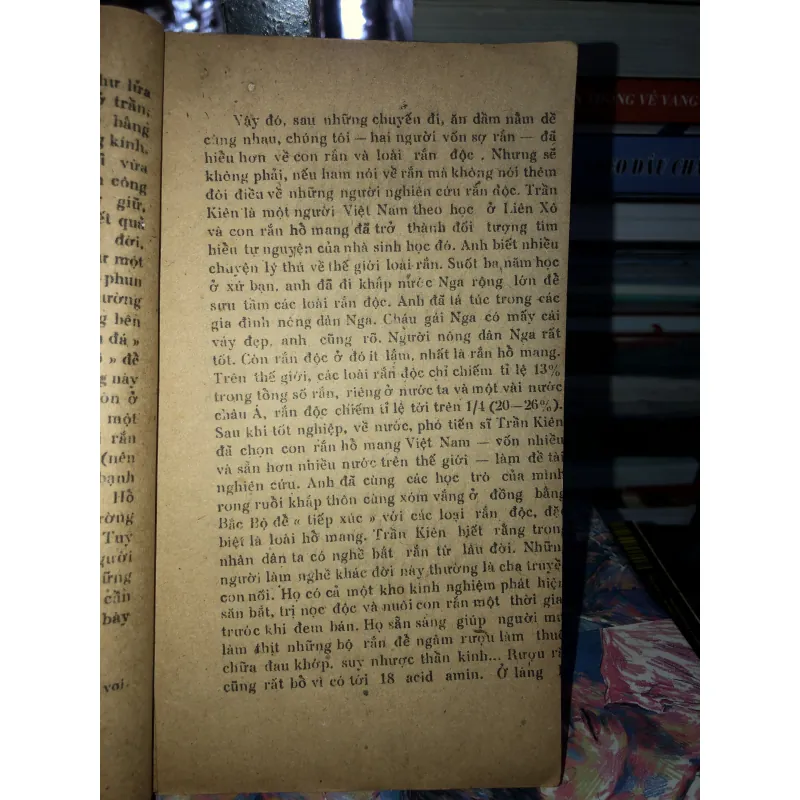 hư lửa
ở trần,
bằng
g kính.
i vừa
n công
giữ,
ết quả
đời,
ư một
phun
ường
g bên
đá »
» đề
g này
òn ở
một
i rắn
(nên
bạnh
Hồ
ường
Tuý
gười
ững
cần
bày
vơi.
Vậy đó, sau những chuyến đi, ăn dầm nằm dề
cùng nhau, chúng tôi — hai người vốn sợ rắn — đã
hiểu hơn về con rắn và loài rắn độc . Nhưng sẽ
không phải, nếu ham nói về rắn mà không nói thêm
đôi điều về những người nghiên cứu rắn độc. Trần
Kiên là một người Việt Nam theo học ở Liên Xô
và con rắn hồ mang đã trở thành đối tượng tìm
hiểu tự nguyện của nhà sinh học đó. Anh biết nhiều
chuyện lý thú về thế giới loài rắn. Suốt ba năm học
ở xứ bạn, anh đã đi khắp nước Nga rộng lớn để
sưu tầm các loài rắn độc. Anh đã tá túc trong các
gia đình nông dân Nga. Cháu gái Nga có mấy cái
váy đẹp, anh cũng rõ. Người nông dân Nga rất
tốt. Còn rắn độc ở đó ít lắm, nhất là rắn hồ mang.
Trên thế giới, các loài rắn độc chỉ chiếm tỉ lệ 13%
trong tổng số rắn, riêng ở nước ta và một vài nước
châu Á, rắn độc chiếm tỉ lệ tới trên 1/4 (20—26%).
Sau khi tốt nghiệp, về nước, phó tiến sĩ Trần Kiên
đã chọn con rắn hồ mang Việt Nam — vốn nhiều
và sẵn hơn nhiều nước trên thế giới — làm đề tài
nghiên cứu. Anh đã cùng các học trò của mình
rong ruổi khắp thôn cùng xóm vắng ở đồng bằng
Bắc Bộ để « tiếp xúc » với các loại rắn độc, đặc
biệt là loài hồ mang. Trần Kiên biết rằng trong
nhân dân ta có nghề bắt rắn từ lâu đời. Những
người làm nghề khác đời này thường là cha truyền
con nối. Họ có cả một kho kinh nghiệm phát hiện
săn bắt, trị nọc độc và nuôi con rắn một thời gia
trước khi đem bán. Họ sẵn sàng giúp người mu
làm thịt những bộ rắn để ngâm rượu làm thuố
chữa đau khớp, suy nhược thần kinh... Rượu rắ
cũng rất bổ vì có tới 18 acid amin. Ở làng
VỀ VANG
DẤU